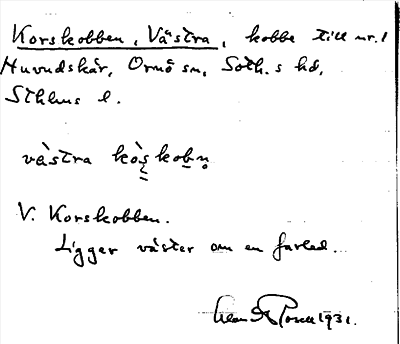 Korskobben, Västra, kobbe till nr. 1
Huvudskär, Ornö sn, Soth.s hd,
Sthlms l.
västra kòs̱kob̥n̥
V. Korskobben.
Ligger väster om en farled.
1931.